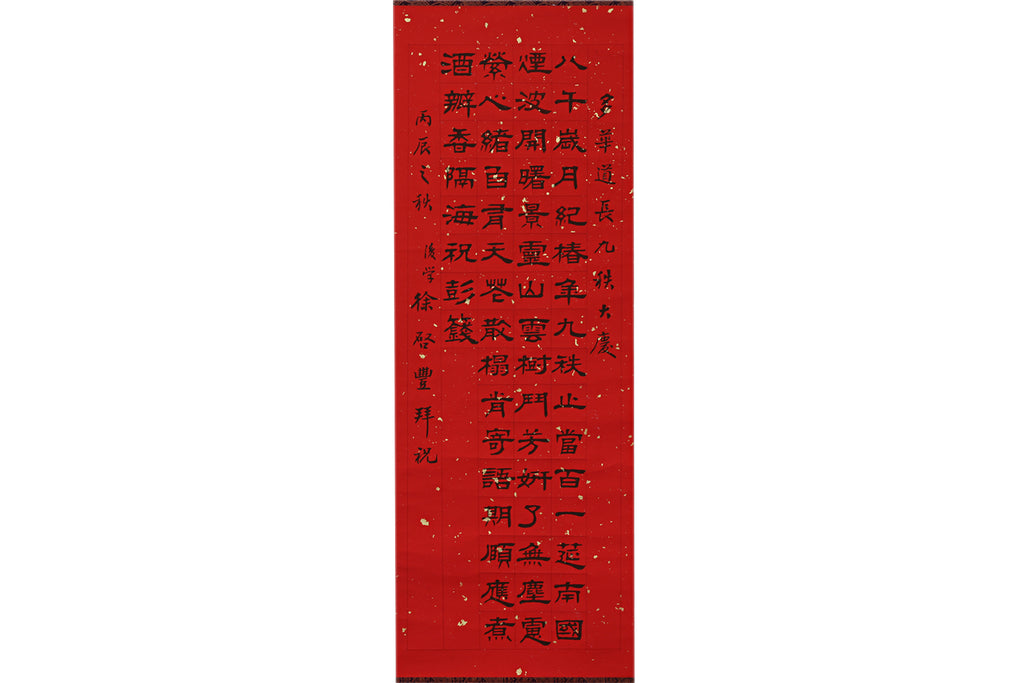 多華道長九秩大慶
八千歲月紀椿年九秩止當百一延南國
煙波開曙景靈山雲樹鬥芳妍了無塵慮
縈心緒自有天花散榻前寄語期頤應煮
酒瓣香隔海祝彭籛
丙辰之秋 後学徐啓豐拜祝